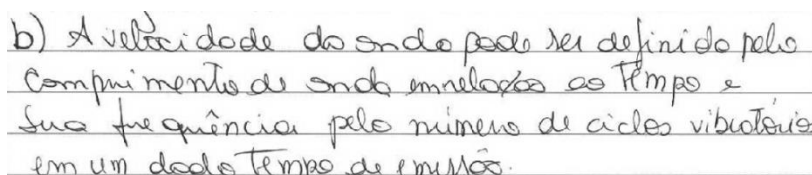 b) A velocidade da onda pode ser definido pelo
comprimento de onda em relação ao tempo e
sua frequência pelo número de ciclos vibratórios
em um dado tempo de emissão.